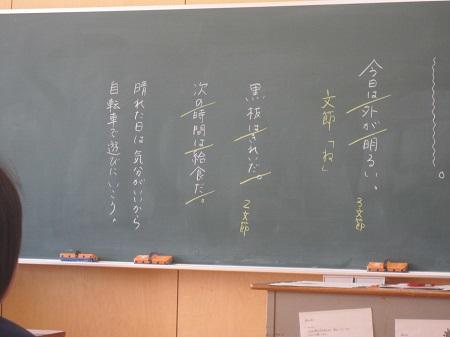 今日は外が明るい。
3文節
文節「ね」
黒板はきれいだ。
2文節
次の時間は給食だ。
晴れた日は気分がいいから
自転車で遊びにいこう。